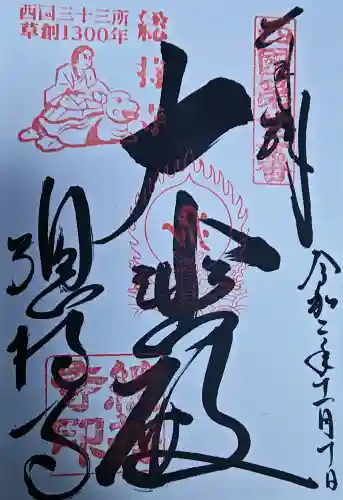 奉拝
令和二年十一月十日
大悲殿
総持寺
西国三十三所
草創1300年
總持寺
總持
寺印